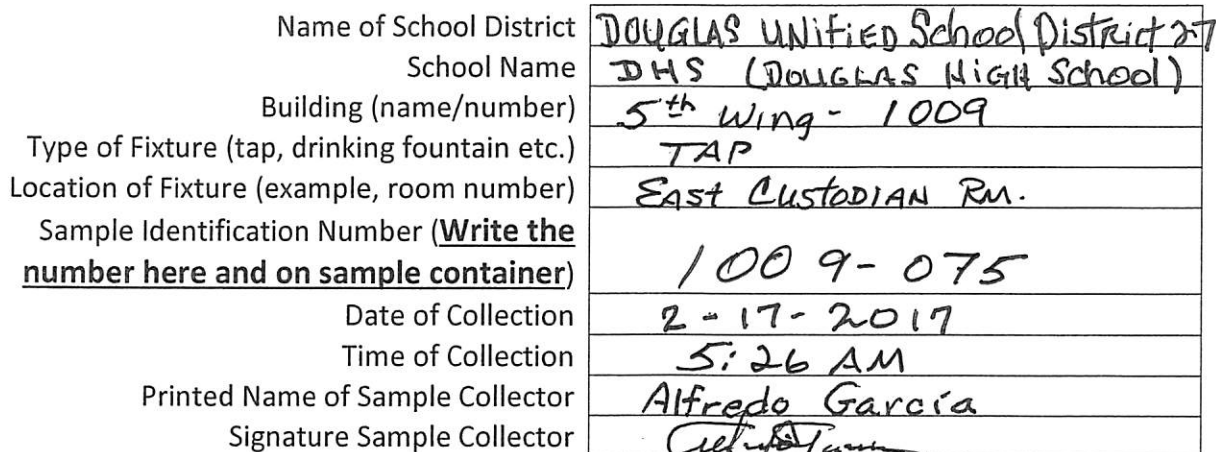 Name of School District DOUGLAS UNIFIED School District 27
School Name DHS (DOUGLAS HIGH School)
Building (name/number) 5th Wing - 1009
Type of Fixture (tap, drinking fountain etc.) TAP
Location of Fixture (example, room number) EAST CUSTODIAN RM.
Sample Identification Number (Write the
number here and on sample container) 1009-075
Date of Collection 2-17-2017
Time of Collection 5:26 AM
Printed Name of Sample Collector Alfredo García
Signature Sample Collector